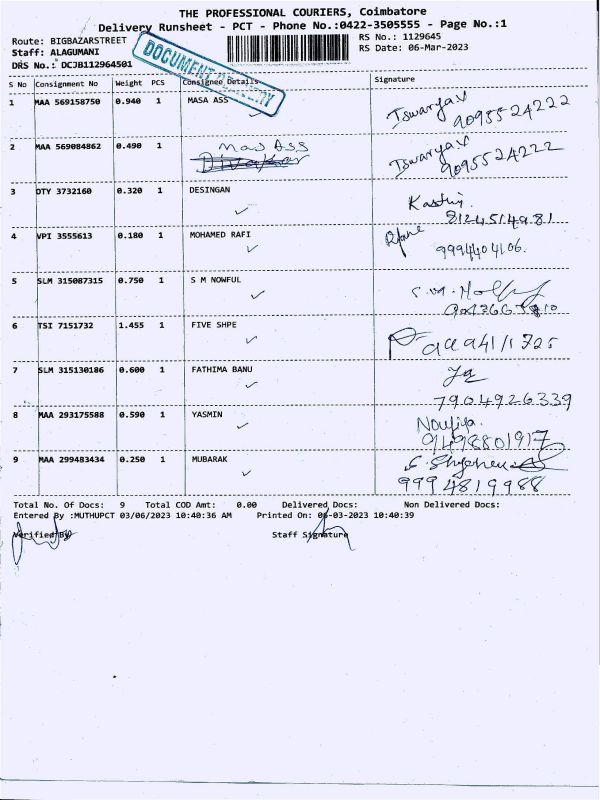 THE PROFESSIONAL COURIERS, Coimbatore
Delivery Runsheet - PCT - Phone No.:0422-3505555 - Page No.:1
Route: BIGBAZARSTREET
RS No.: 1129645
Staff: ALAGUMANI
RS Date: 06-Mar-2023
DRS No.: DCJB112964501
DOCUMENT
S No Consignment No Weight PCS Consignee Details Signature
1 MAA 569158750 0.940 1 MASA ASS Iswarya.V
9095524222
2 MAA 569084862 0.490 1 Mas Ass Iswarya.V
Divakar 9095524222
3 DTY 3732160 0.320 1 DESINGAN
8124514981
4 VPI 3555613 0.180 1 MOHAMED RAFI
9994404106.
5 SLM 315087315 0.750 1 S M NOWFUL
6 TSI 7151732 1.455 1 FIVE SHPE
7 SLM 315130186 0.600 1 FATHIMA BANU
7904926339
8 MAA 293175588 0.590 1 YASMIN
9498801917
9 MAA 299483434 0.250 1 MUBARAK
9994819988
Total No. Of Docs: 9 Total COD Amt: 0.00 Delivered Docs: Non Delivered Docs:
Entered By :MUTHUPCT 03/06/2023 10:40:36 AM Printed On: 06-03-2023 10:40:39
Verified By Staff Signature